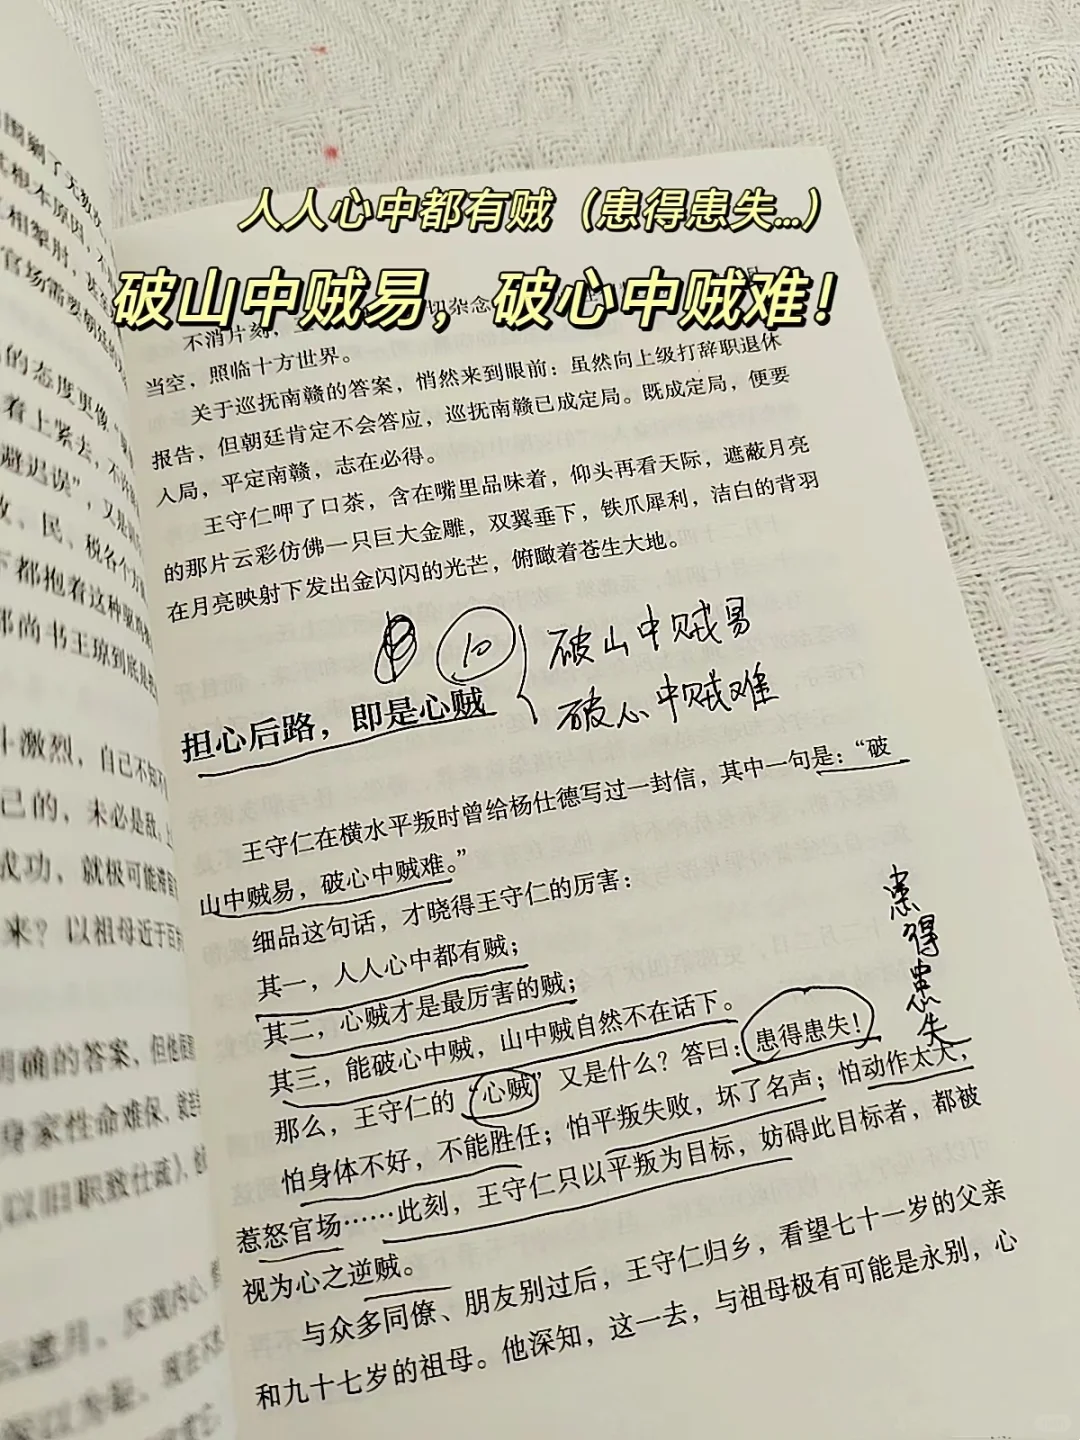 人人心中都有贼（患得患失...）
破山中贼易，破心中贼难！
不消片刻，
切杂念
当空，照临十方世界。
关于巡抚南赣的答案，悄然来到眼前：虽然向上级打辞职退休
报告，但朝廷肯定不会答应，巡抚南赣已成定局。既成定局，便要
入局，平定南赣，志在必得。
王守仁呷了口茶，含在嘴里品味着，仰头再看天际，遮蔽月亮
的那片云彩仿佛一只巨大金雕，双翼垂下，铁爪犀利，洁白的背羽
在月亮映射下发出金闪闪的光芒，俯瞰着苍生大地。
10
破山中贼易
破心中贼难
担心后路，即是心贼
王守仁在横水平叛时曾给杨仕德写过一封信，其中一句是：“破
山中贼易，破心中贼难。”
细品这句话，才晓得王守仁的厉害：
其一，人人心中都有贼；
其二，心贼才是最厉害的贼；
其三，能破心中贼，山中贼自然不在话下。
那么，王守仁的“心贼”又是什么？答曰：患得患失！
怕身体不好，不能胜任；怕平叛失败，坏了名声；怕动作太大，
惹怒官场……此刻，王守仁只以平叛为目标，妨碍此目标者，都被
视为心之逆贼。
与众多同僚、朋友别过后，王守仁归乡，看望七十一岁的父亲
和九十七岁的祖母。他深知，这一去，与祖母极有可能是永别，心
患得患失
根本原因，
相掣肘，
官场需要
的态度更像
看上紧去，不
避迟误”，又是
、民、税各个方
都抱着这种
尚书王琼到底
激烈，自己不知不
己的，未必是敌，
成功，就极可能
来？以祖母近于百
明确的答案，但他
身家性命难保，
以旧职致仕疏），
遮月，反观内心，